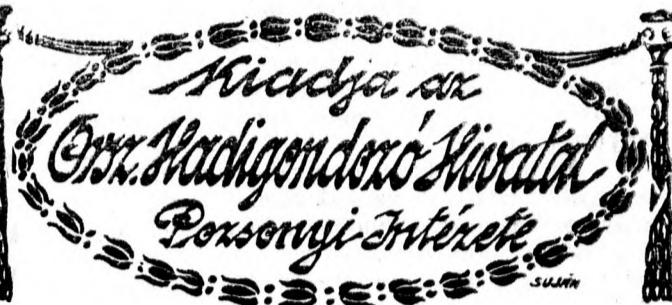 Kiadja az
Orsz. Hadigondozó Hivatal
Pozsonyi Intézete
SUJÁN